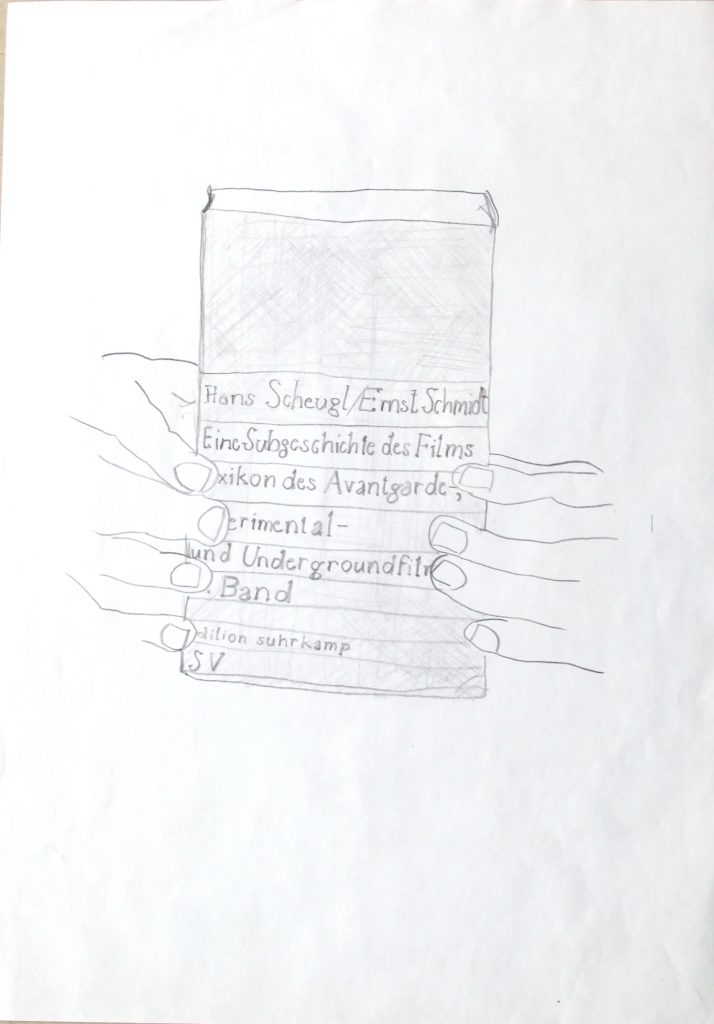 Hans Scheugl/Ernst Schmidt
Eine Subgeschichte des Films
xikon des Avantgarde-,
erimental-
und Undergroundfil
. Band
dition suhrkamp
SV